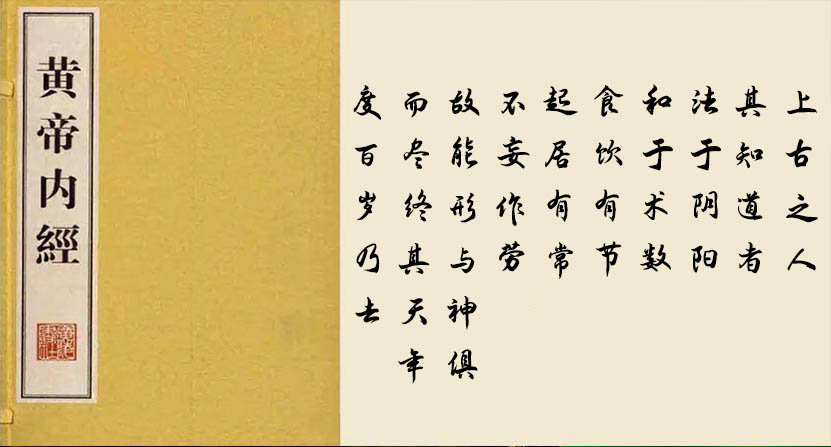 上古之人
其知道者
法于阴阳
和于术数
食饮有节
起居有常
不妄作劳
故能形与神俱
而尽终其天年
度百岁乃去
黄帝内經